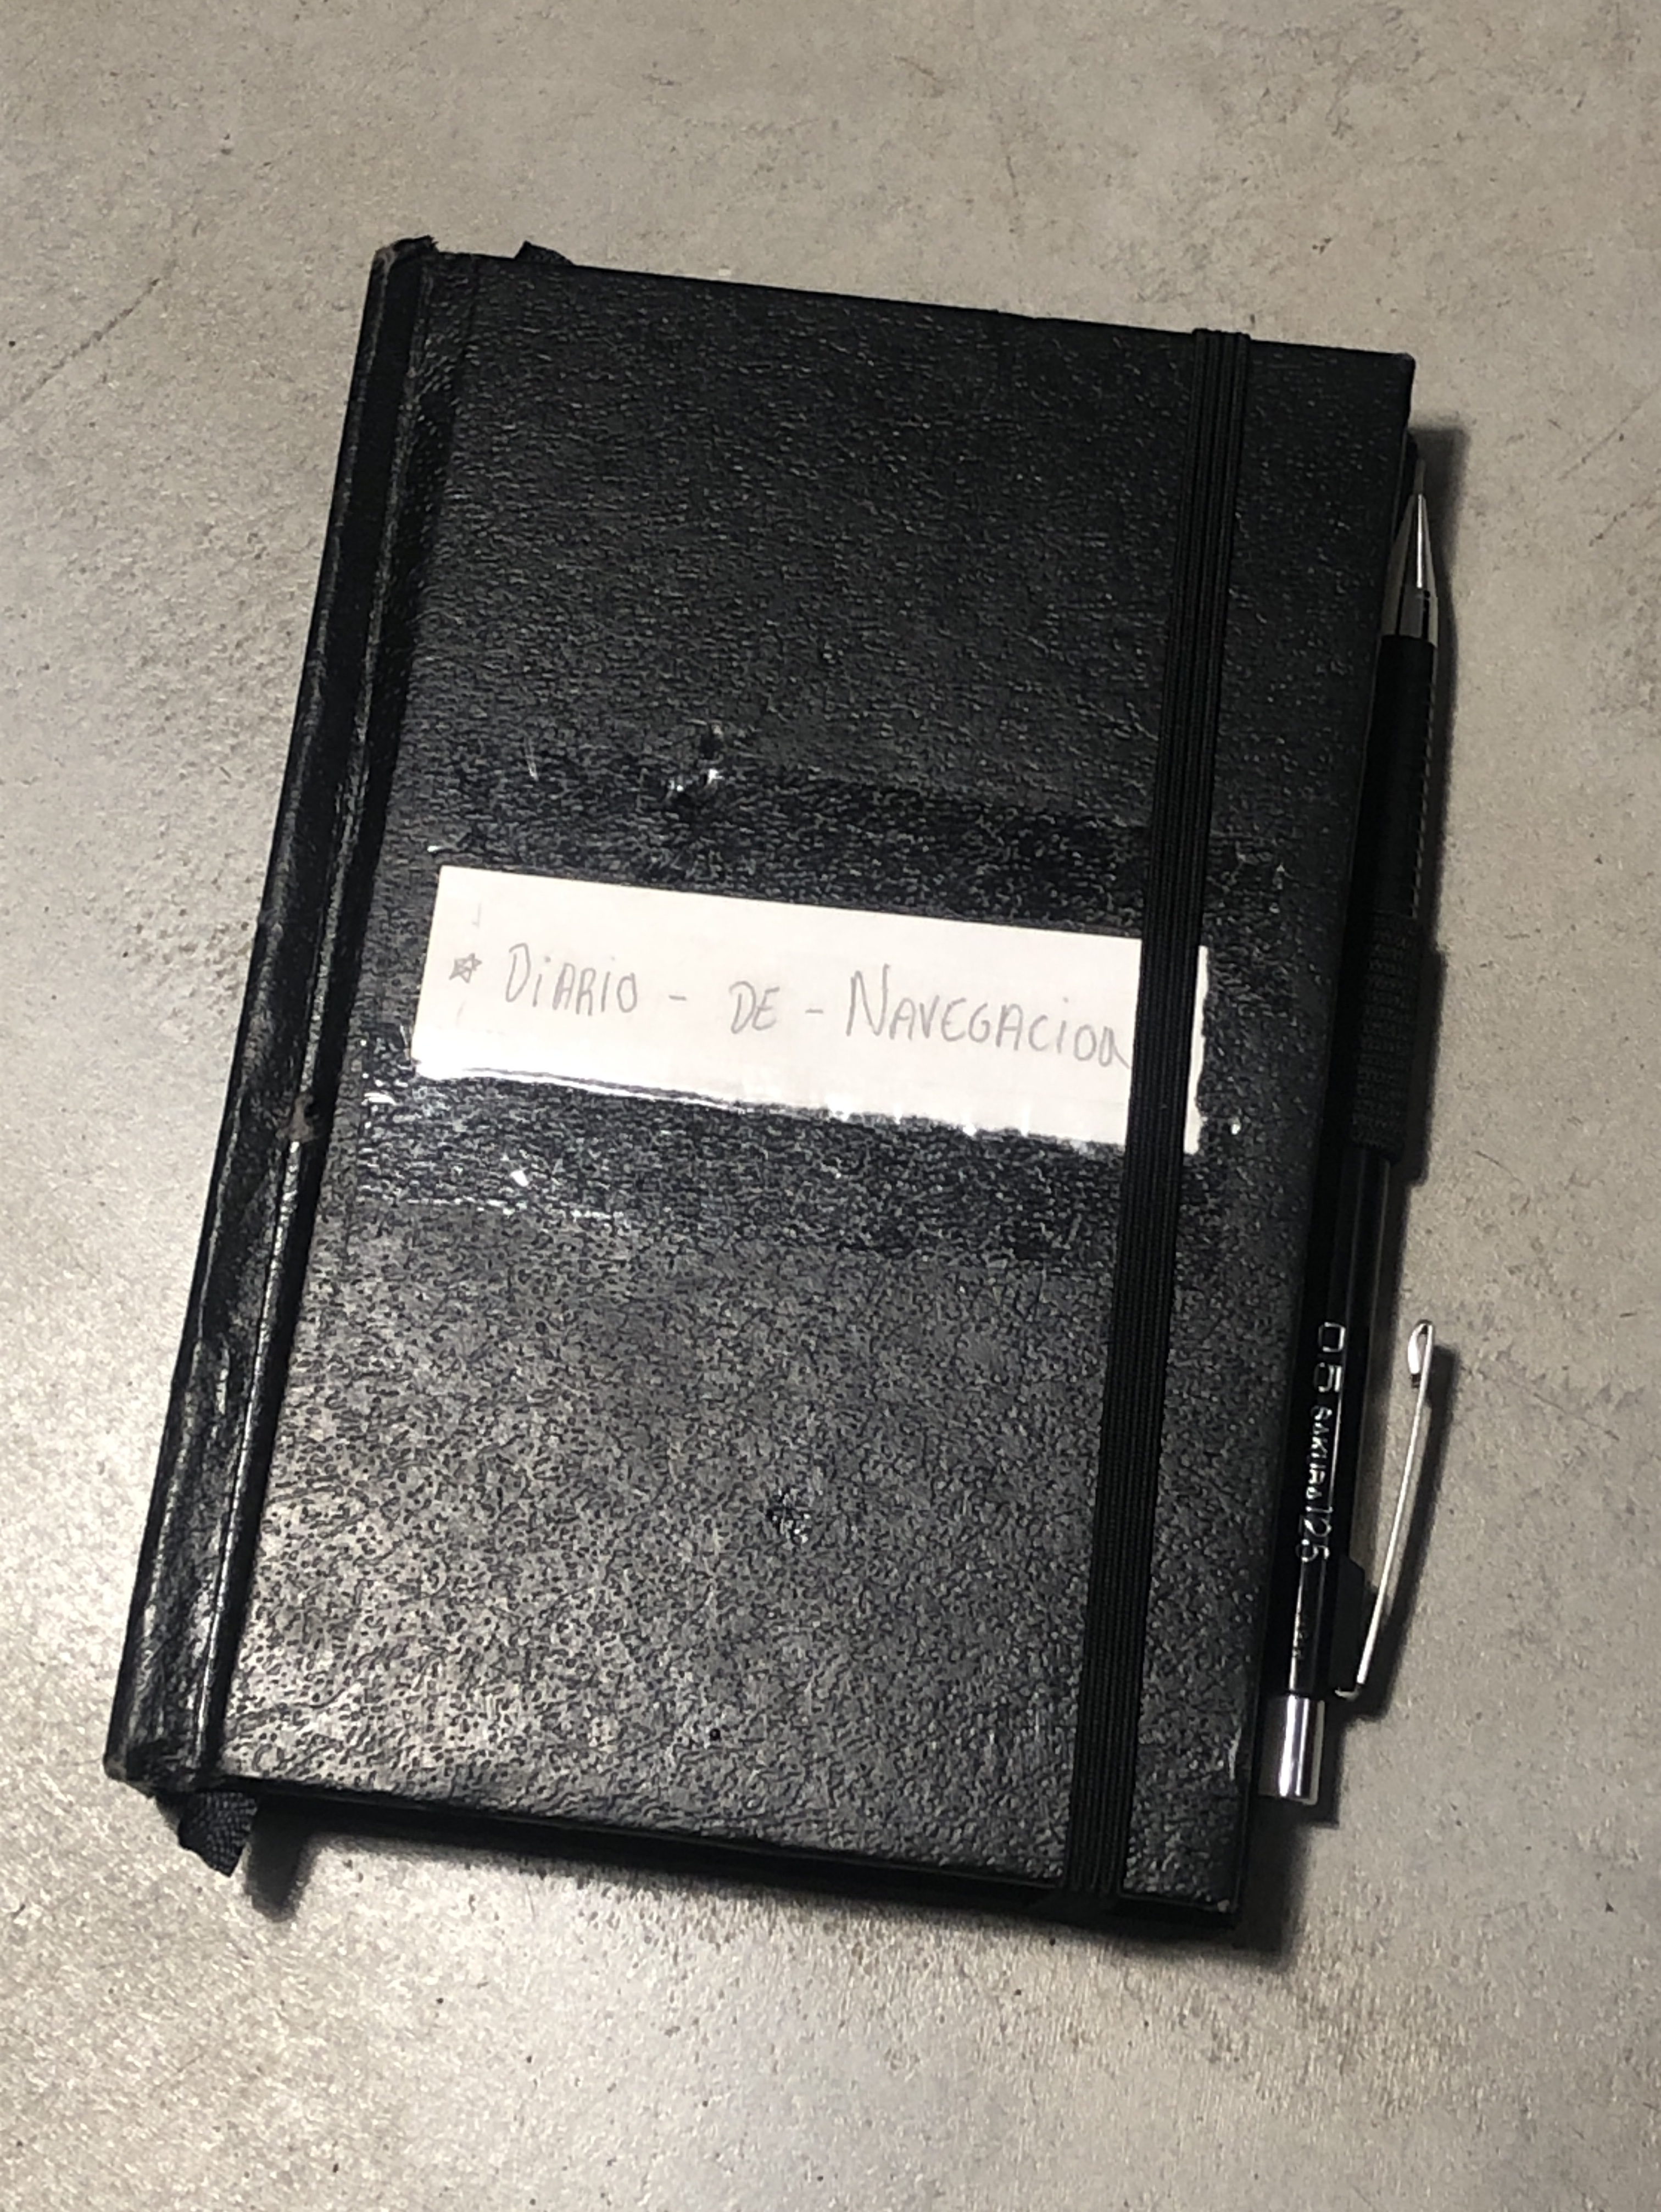 ☆ DiARIO - DE - NAVEGACiON
0.5 SAKURA 125